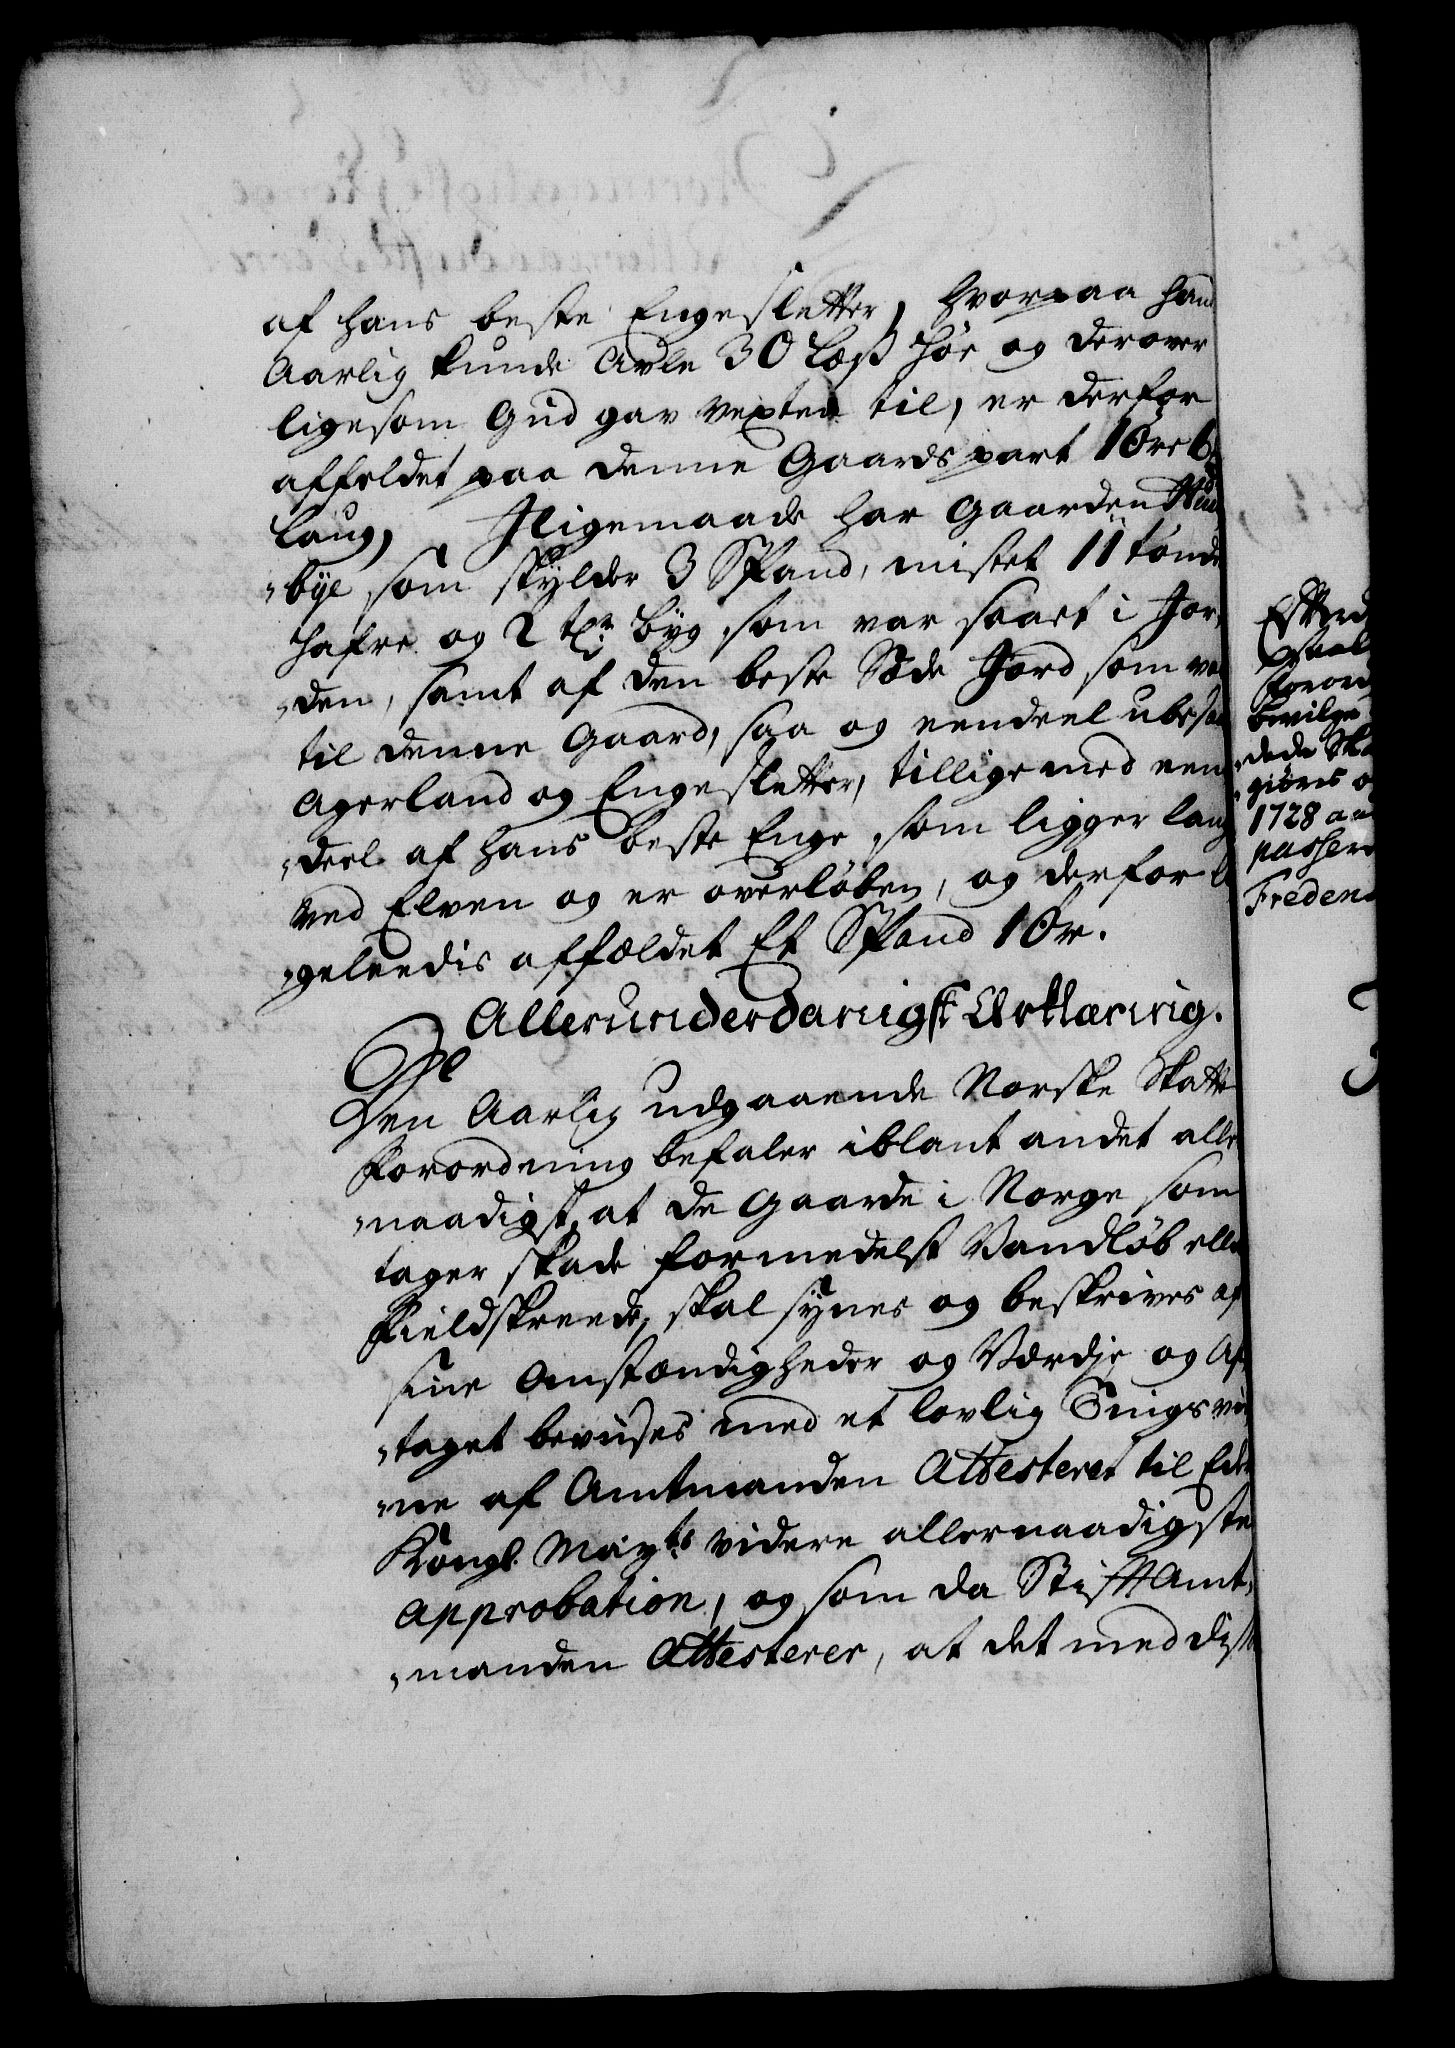 af hans beste Engesletter, hvorpaa hand
Aarlig kunde Avle 30 Læs Høe og derover
ligesom Gud gav vexten til, er derfor
affeldet paa denne Gaards part 1 Øre 6
laug, Iligemaade har Gaarden
bye som skylder 3 Spand, mistet 11 tønde
hafre og 2 tr. byg som var saaet i Jor,
„den, samt af den beste Sæde Jord som va
til denne Gaard, saa og eendeel ubesaa
Agerland og Engesletter, tilligemed een
„deel af hans beste Enge, som ligger lang
ved Elven og er overløben, og derfor li
„geleedis affældet Et Spand 1 Øre.
Allerunderdanigst Erklæring.
Den Aarlig udgaaende Norske Skatte
Forordning befaler iblant andet aller
„naadigst, at de Gaarde i Norge som
tager skade formedelst Vandløb elle
Fieldskreede, skal synes og beskrives af
sine Omstændigheder og Værdje og Af
„taget bevüses med et lovlig Tings vid
„ne af Amtmanden Attesteret til Eders
Kongl. Mayts videre allernaadigste
Approbation, og som da Stifft Amt,
„manden Attesterer, at det med diss
Foror
bevilge
„dede Ska
giøres o
1728 a
passere
Fredens